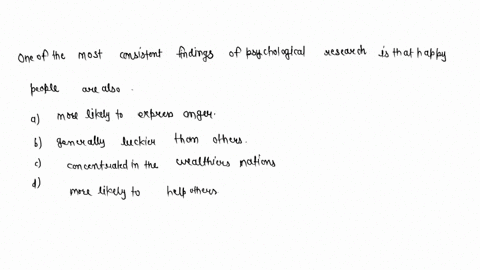 one of the most consistent findings of psychological research is that happy
people are also .
a) more likely to express anger.
b) generally luckier than others.
c) concentrated in the wealthiers nations
d) more likely to help others